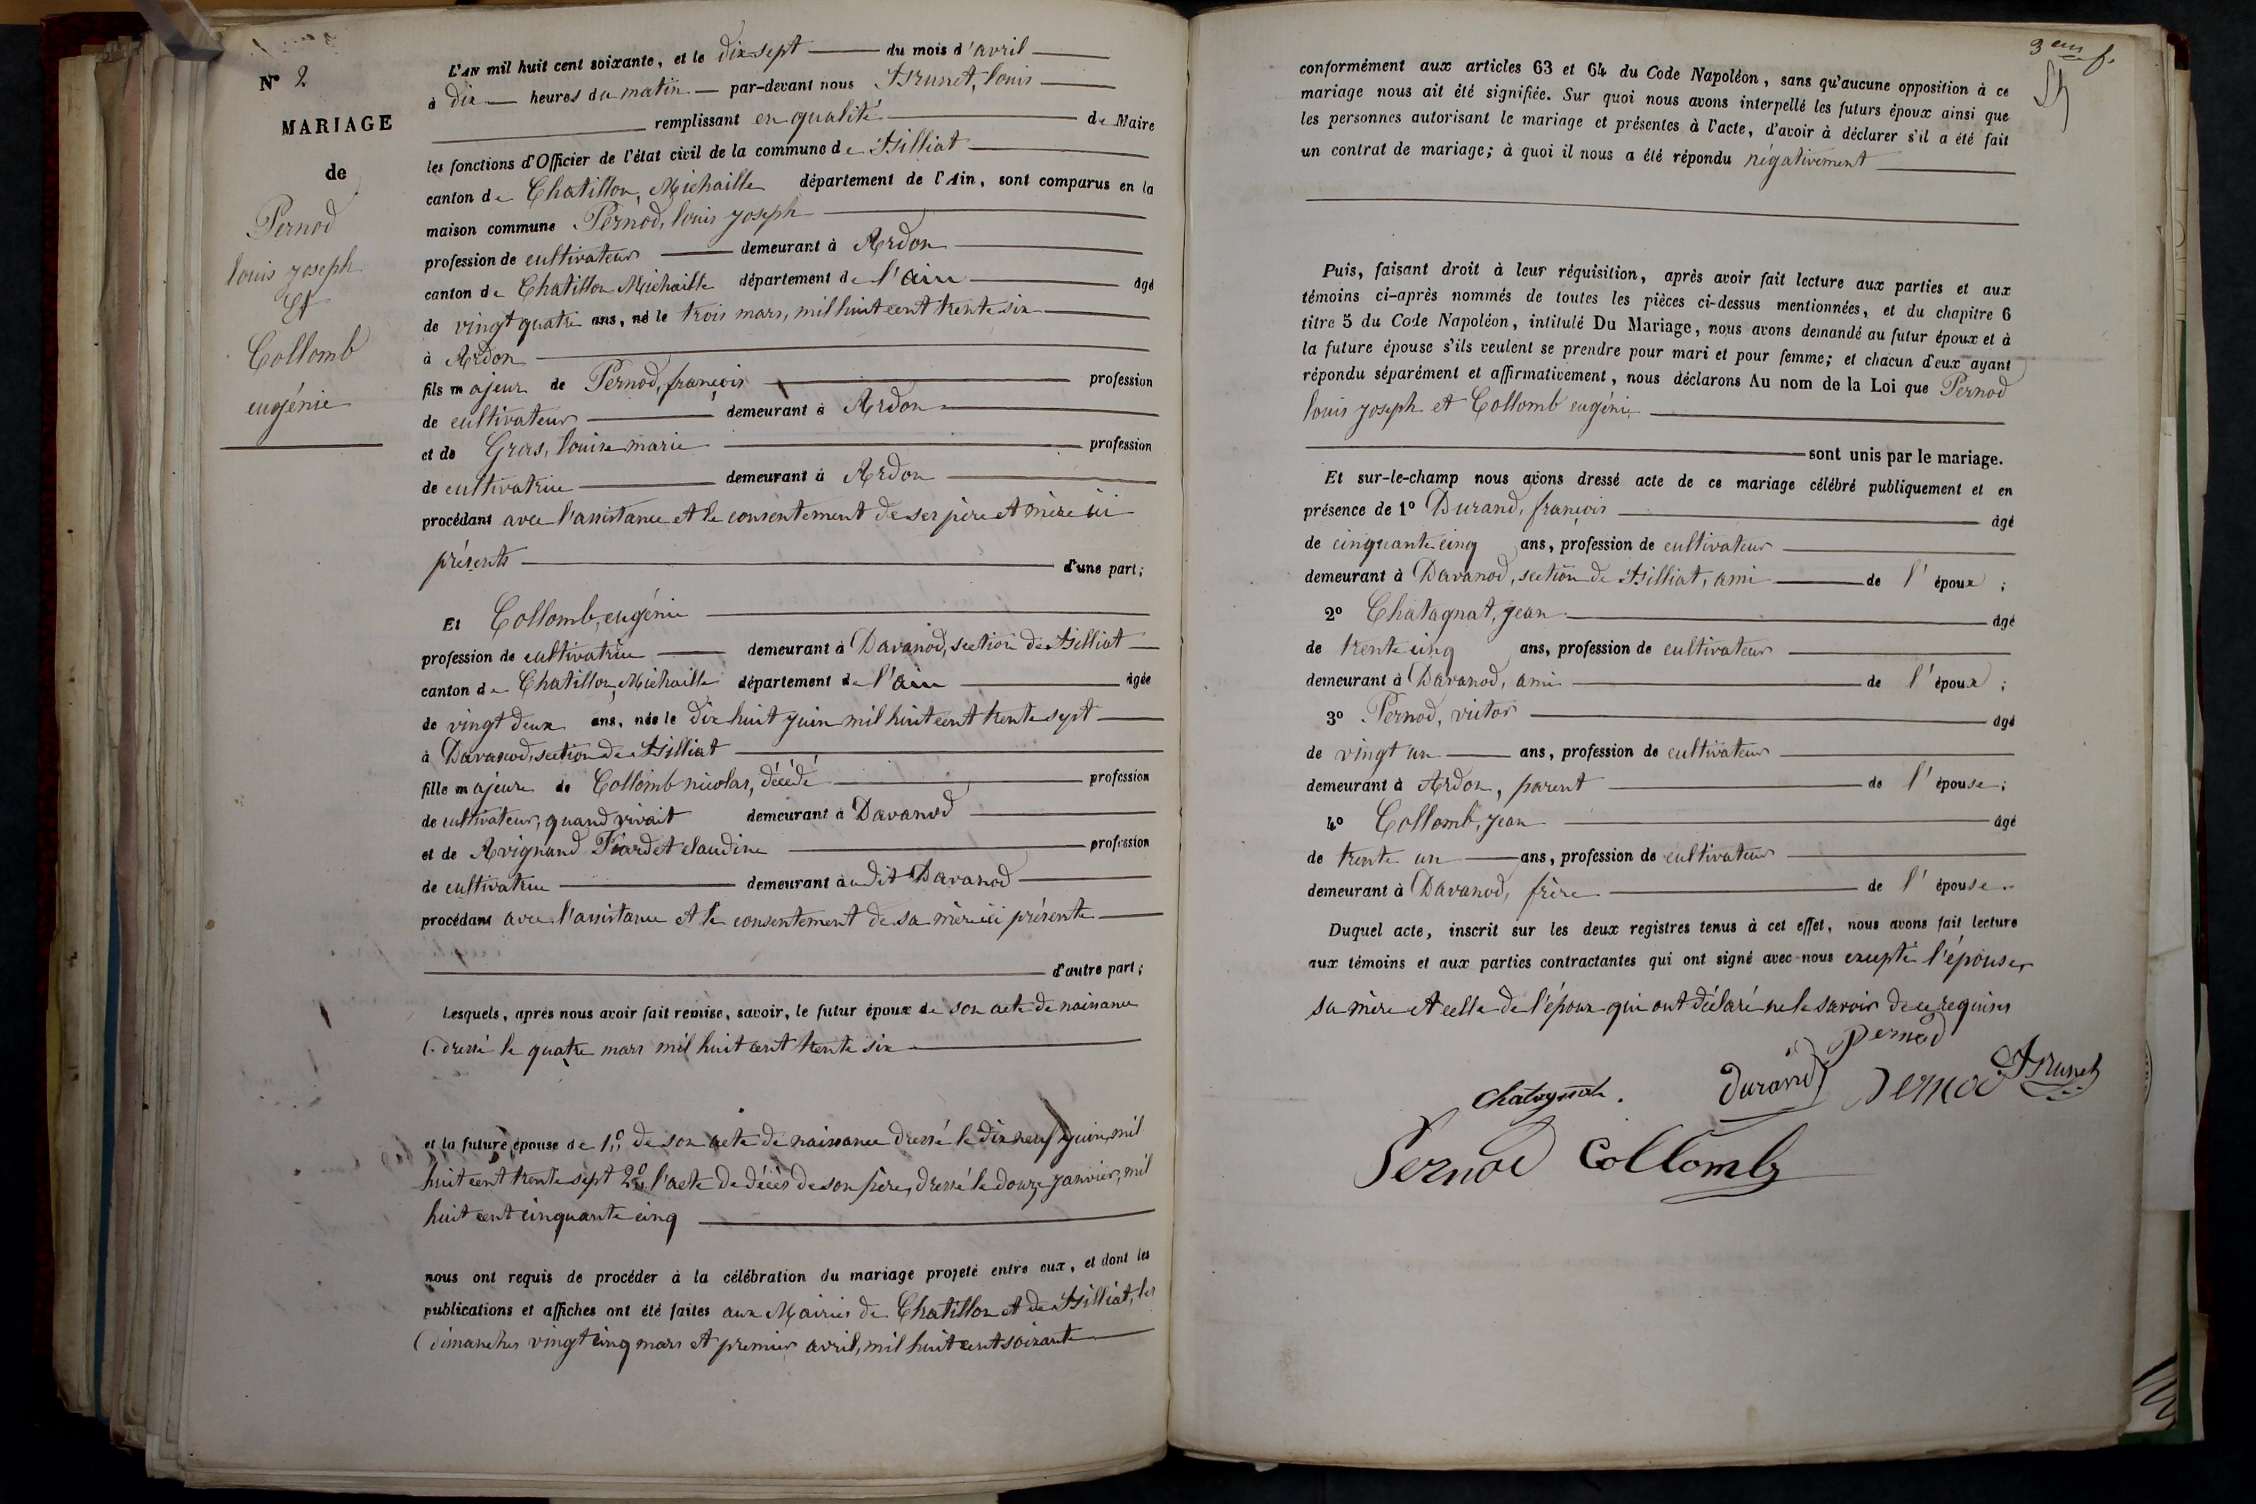 N° 2
MARIAGE
de
Pernod
louis joseph
Et
Collomb
eugénie
L'AN mil huit cent soixante, et le dix sept du mois d'avril
à dix heures du matin par-devant nous Brunet, louis
remplissant en qualité de Maire
les fonctions d'Officier de l'état civil de la commune de Billiat
canton de Chatillon, Michaille département de l'Ain, sont comparus en la
maison commune Pernod, louis joseph
profession de cultivateur demeurant à Ardon
canton de Chatillon Michaille département de l'ain âgé
de vingt quatre ans, né le trois mars, mil huit cent trente six
à Ardon
fils majeur de Pernod, françois profession
de cultivateur demeurant à Ardon
et de Gros, louise marie profession
de cultivatrice demeurant à Ardon
procédant avec l'assistance et le consentement de ses père et mère ici
présents d'une part;
Et Collomb, eugénie
profession de cultivatrice demeurant à Davanod, section de Billiat
canton de Chatillon, Michaille département de l'ain âgée
de vingt deux ans, née le dix huit juin mil huit cent trente sept
à Davanod, section de Billiat
fille majeure de Collomb nicolas, décédé profession
de cultivateur, quand vivait demeurant à Davanod
et de Avignand Fiardet claudine profession
de cultivatrice demeurant audit Davanod
procédant avec l'assistance et le consentement de sa mère ici présente
d'autre part;
Lesquels, après nous avoir fait remise, savoir, le futur époux de son acte de naissance
dressé le quatre mars mil huit cent trente six
et la future épouse de 1° de son acte de naissance dressé le dix neuf juin, mil
huit cent trente sept 2° l'acte de décès de son père, dressé le douze janvier, mil
huit cent cinquante cinq
nous ont requis de procéder à la célébration du mariage projeté entre eux, et dont les
publications et affiches ont été faites aux Mairies de Chatillon et de Billiat, les
dimanches vingt cinq mars et premier avril, mil huit cent soixante
3eme f.
conformément aux articles 63 et 64 du Code Napoléon, sans qu'aucune opposition à ce
mariage nous ait été signifiée. Sur quoi nous avons interpellé les futurs époux ainsi que
les personnes autorisant le mariage et présentes à l'acte, d'avoir à déclarer s'il a été fait
un contrat de mariage; à quoi il nous a été répondu négativement
Puis, faisant droit à leur réquisition, après avoir fait lecture aux parties et aux
témoins ci-après nommés de toutes les pièces ci-dessus mentionnées, et du chapitre 6
titre 5 du Code Napoléon, intitulé Du Mariage, nous avons demandé au futur époux et à
la future épouse s'ils veulent se prendre pour mari et pour femme; et chacun d'eux ayant
répondu séparément et affirmativement, nous déclarons Au nom de la Loi que Pernod
louis joseph et Collomb eugénie
sont unis par le mariage.
Et sur-le-champ nous avons dressé acte de ce mariage célébré publiquement et en
présence de 1° Durand, françois âgé
de cinquante cinq ans, profession de cultivateur
demeurant à Davanod, section de Billiat, ami de l'époux;
2° Chatagnat, jean âgé
de trente cinq ans, profession de cultivateur
demeurant à Davanod, ami de l'époux;
3° Pernod, victor âgé
de vingt un ans, profession de cultivateur
demeurant à Ardon, parent de l'épouse;
4° Collomb, jean âgé
de trente un ans, profession de cultivateur
demeurant à Davanod, frère de l'épouse.
Duquel acte, inscrit sur les deux registres tenus à cet effet, nous avons fait lecture
aux témoins et aux parties contractantes qui ont signé avec nous excepté l'épouse,
sa mère et celle de l'époux qui ont déclaré ne le savoir de ce requises
Pernod
Chatagnat. Durand Pernod Brunet
Pernod Collomb